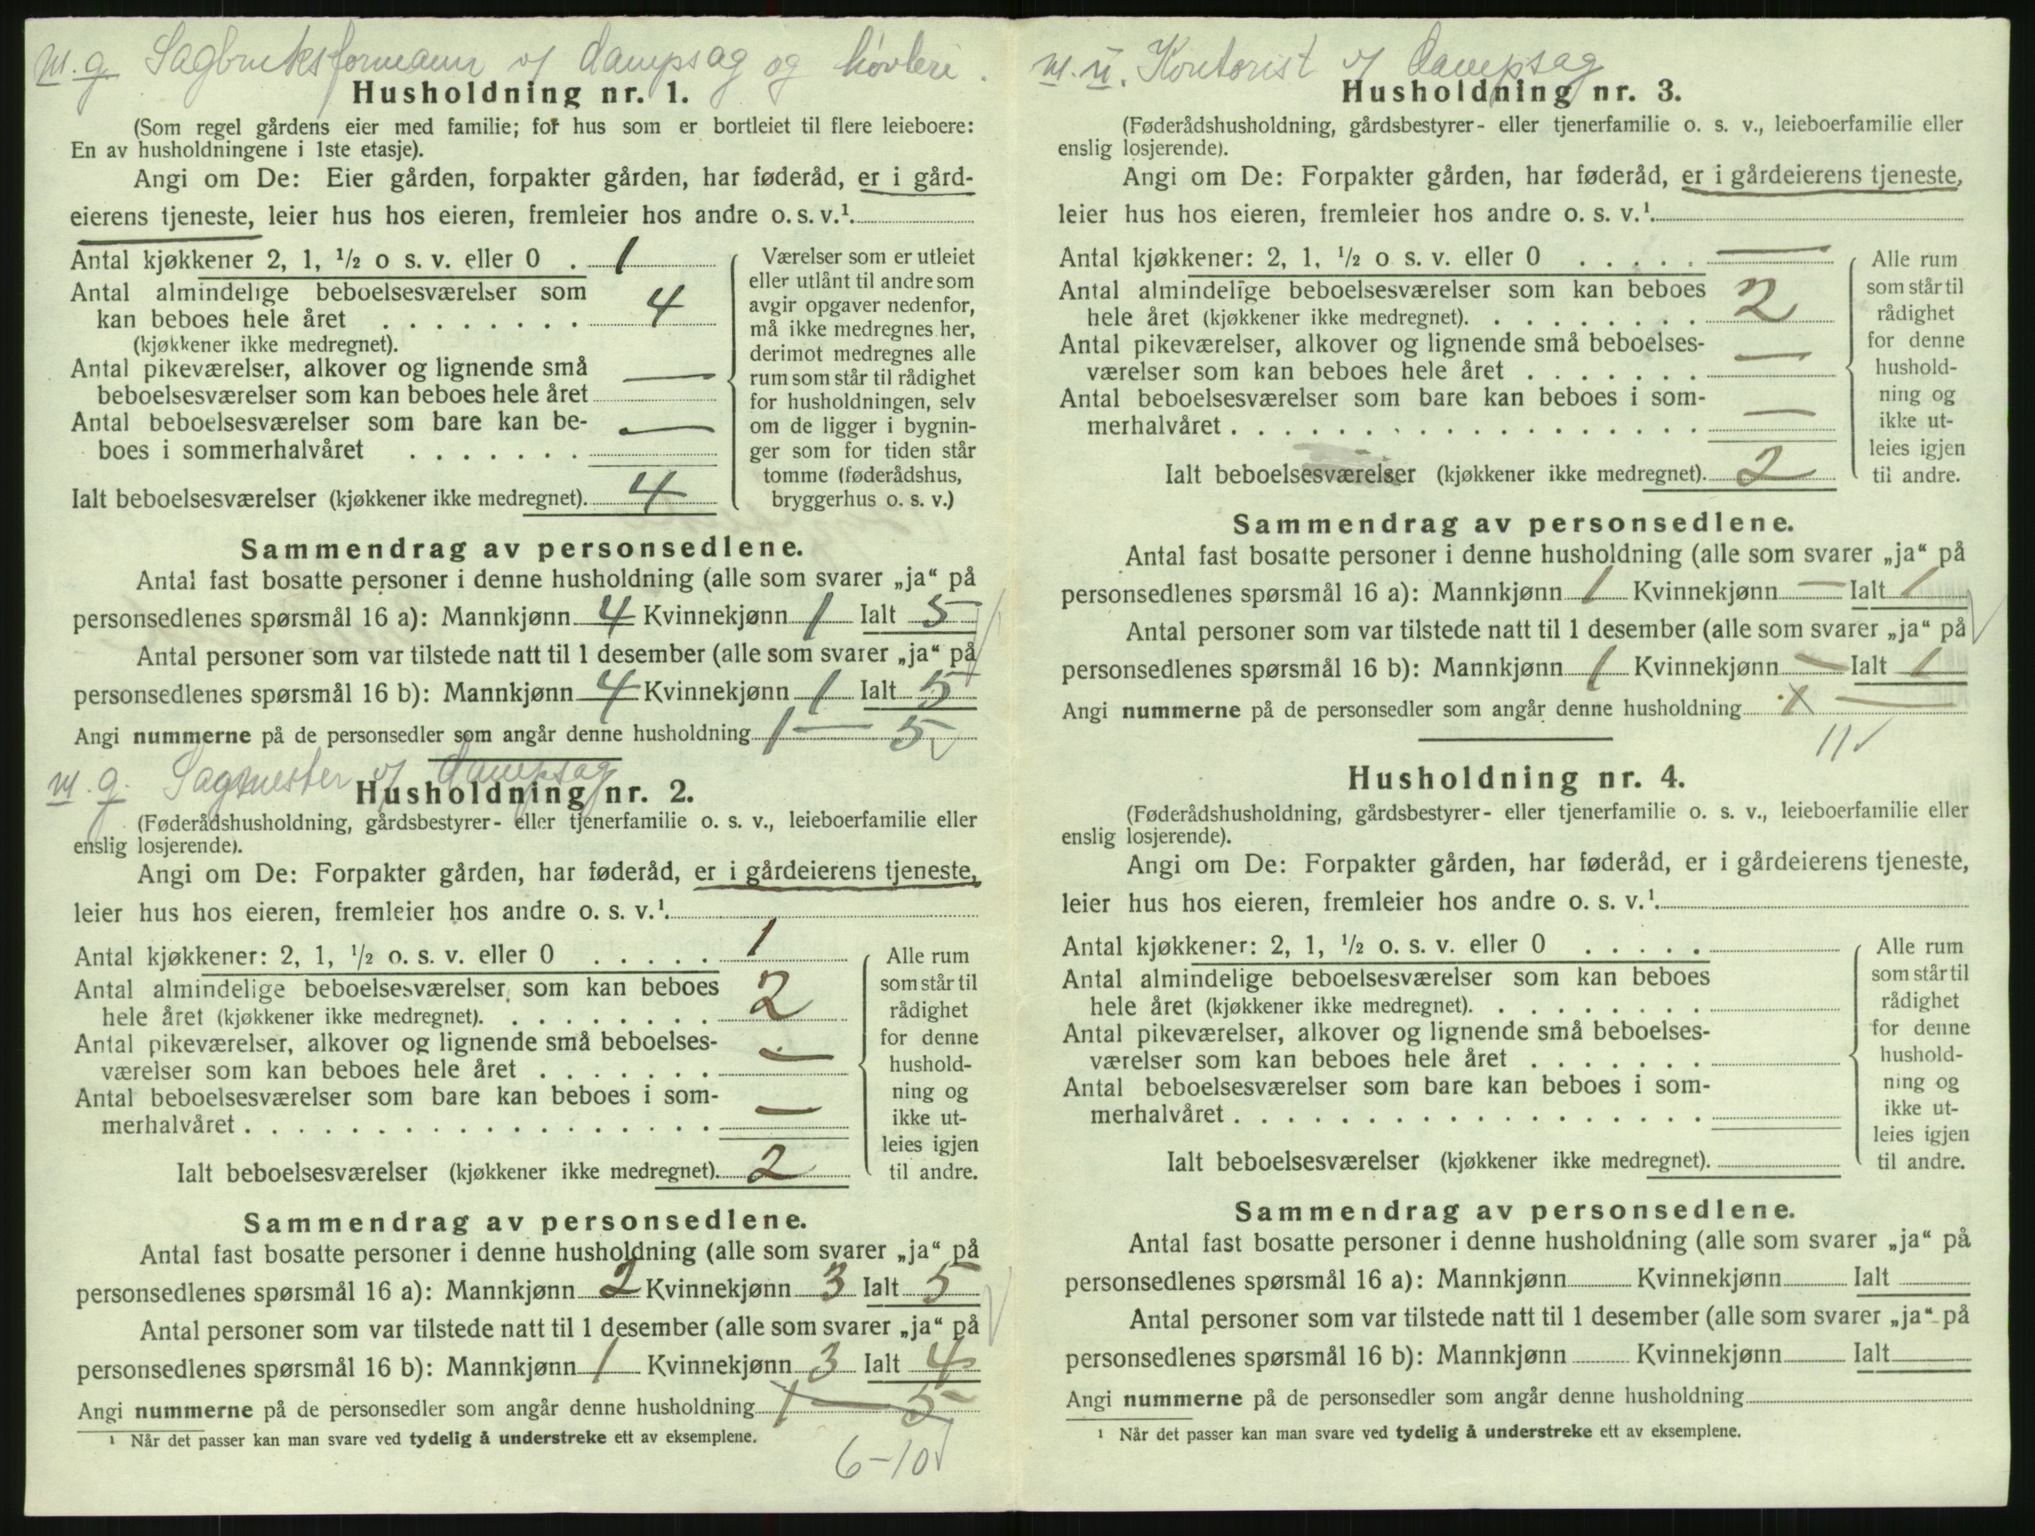 m. g. Sagbruksformann v/ dampsag og høvleri.
Husholdning nr. 1.
(Som regel gårdens eier med familie; for hus som er bortleiet til flere leieboere:
En av husholdningene i 1ste etasje).
Angi om De: Eier gården, forpakter gården, har føderåd, er i gård-
eierens tjeneste, leier hus hos eieren, fremleier hos andre o. s. v.¹.
Antal kjøkkener 2, 1, ½ o s. v. eller 0 . 1
Antal almindelige beboelsesværelser som
kan beboes hele året . . . . . . . . 4
(kjøkkener ikke medregnet).
Antal pikeværelser, alkover og lignende små
beboelsesværelser som kan beboes hele året —
Antal beboelsesværelser som bare kan be-
boes i sommerhalvåret . . . . . . . —
Ialt beboelsesværelser (kjøkkener ikke medregnet). 4
Værelser som er utleiet
eller utlånt til andre som
avgir opgaver nedenfor,
må ikke medregnes her,
derimot medregnes alle
rum som står til rådighet
for husholdningen, selv
om de ligger i bygnin-
ger som for tiden står
tomme (føderådshus,
bryggerhus o. s. v.)
Sammendrag av personsedlene.
Antal fast bosatte personer i denne husholdning (alle som svarer „ja“ på
personsedlenes spørsmål 16 a): Mannkjønn 4 Kvinnekjønn 1 Ialt 5
Antal personer som var tilstede natt til 1 desember (alle som svarer „ja“ på
personsedlenes spørsmål 16 b): Mannkjønn 4 Kvinnekjønn 1 Ialt 5
Angi nummerne på de personsedler som angår denne husholdning 1 — 5
m. g. Sagmester v/ dampsag
Husholdning nr. 2.
(Føderådshusholdning, gårdsbestyrer- eller tjenerfamilie o. s. v., leieboerfamilie eller
enslig losjerende).
Angi om De: Forpakter gården, har føderåd, er i gårdeierens tjeneste,
leier hus hos eieren, fremleier hos andre o. s. v.¹.
Antal kjøkkener: 2, 1, ½ o. s. v. eller 0 . . . . . 1
Antal almindelige beboelsesværelser som kan beboes
hele året (kjøkkener ikke medregnet). . . . . . . . . 2
Antal pikeværelser, alkover og lignende små beboelses-
værelser som kan beboes hele året . . . . . . . —
Antal beboelsesværelser som bare kan beboes i som-
merhalvåret . . . . . . . . . . . . . . . . . . —
Ialt beboelsesværelser (kjøkkener ikke medregnet). 2
Alle rum
som står til
rådighet
for denne
hushold-
ning og
ikke ut-
leies igjen
til andre.
Sammendrag av personsedlene.
Antal fast bosatte personer i denne husholdning (alle som svarer „ja“ på
personsedlenes spørsmål 16 a): Mannkjønn 2 Kvinnekjønn 3 Ialt 5
Antal personer som var tilstede natt til 1 desember (alle som svarer „ja“ på
personsedlenes spørsmål 16 b): Mannkjønn 1 Kvinnekjønn 3 Ialt 4
Angi nummerne på de personsedler som angår denne husholdning 1 — 5
¹ Når det passer kan man svare ved tydelig å understreke ett av eksemplene.
6-10
m. u. Kontorist v/ dampsag
Husholdning nr. 3.
(Føderådshusholdning, gårdsbestyrer- eller tjenerfamilie o. s. v., leieboerfamilie eller
enslig losjerende).
Angi om De: Forpakter gården, har føderåd, er i gårdeierens tjeneste,
leier hus hos eieren, fremleier hos andre o. s. v.¹.
Antal kjøkkener: 2, 1, ½ o s. v. eller 0 . . . . . —
Antal almindelige beboelsesværelser som kan beboes
hele året (kjøkkener ikke medregnet). . . . . . . . . 2
Antal pikeværelser, alkover og lignende små beboelses-
værelser som kan beboes hele året . . . . . . . —
Antal beboelsesværelser som bare kan beboes i som-
merhalvåret . . . . . . . . . . . . . . . . . . —
Ialt beboelsesværelser (kjøkkener ikke medregnet). 2
Alle rum
som står til
rådighet
for denne
hushold-
ning og
ikke ut-
leies igjen
til andre.
Sammendrag av personsedlene.
Antal fast bosatte personer i denne husholdning (alle som svarer „ja“ på
personsedlenes spørsmål 16 a): Mannkjønn 1 Kvinnekjønn — Ialt 1
Antal personer som var tilstede natt til 1 desember (alle som svarer „ja“ på
personsedlenes spørsmål 16 b): Mannkjønn 1 Kvinnekjønn — Ialt 1
Angi nummerne på de personsedler som angår denne husholdning 1 —
11
Husholdning nr. 4.
(Føderådshusholdning, gårdsbestyrer- eller tjenerfamilie o. s. v., leieboerfamilie eller
enslig losjerende).
Angi om De: Forpakter gården, har føderåd, er i gårdeierens tjeneste,
leier hus hos eieren, fremleier hos andre o. s. v.¹.
Antal kjøkkener: 2, 1, ½ o. s. v. eller 0 . . . . .
Antal almindelige beboelsesværelser som kan beboes
hele året (kjøkkener ikke medregnet). . . . . . . . .
Antal pikeværelser, alkover og lignende små beboelses-
værelser som kan beboes hele året . . . . . . .
Antal beboelsesværelser som bare kan beboes i som-
merhalvåret . . . . . . . . . . . . . . . . . .
Ialt beboelsesværelser (kjøkkener ikke medregnet).
Alle rum
som står til
rådighet
for denne
hushold-
ning og
ikke ut-
leies igjen
til andre.
Sammendrag av personsedlene.
Antal fast bosatte personer i denne husholdning (alle som svarer „ja“ på
personsedlenes spørsmål 16 a): Mannkjønn Kvinnekjønn Ialt
Antal personer som var tilstede natt til 1 desember (alle som svarer „ja“ på
personsedlenes spørsmål 16 b): Mannkjønn Kvinnekjønn Ialt
Angi nummerne på de personsedler som angår denne husholdning
¹ Når det passer kan man svare ved tydelig å understreke ett av eksemplene.